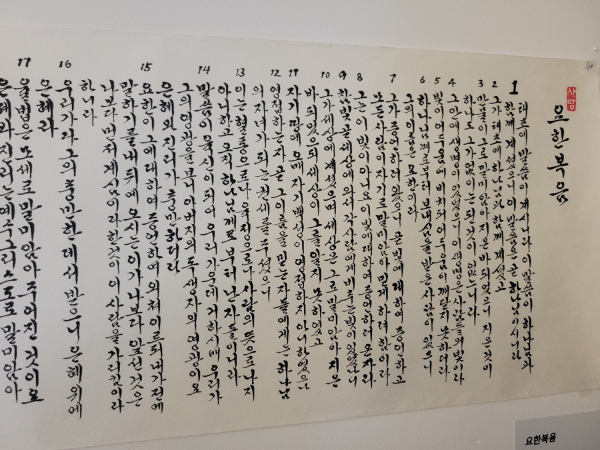 사랑
요한복음
1 태초에 말씀이 계시니라 이 말씀이 하나님과
함께 계셨으니 이 말씀은 곧 하나님이시니라
2 그가 태초에 하나님과 함께 계셨고
3 만물이 그로 말미암아 지은 바 되었으니 지은 것이
하나도 그가 없이는 된 것이 없느니라
4 그 안에 생명이 있었으니 이 생명은 사람들의 빛이라
5 빛이 어두움에 비치되 어두움이 깨닫지 못하더라
6 하나님께로부터 보내심을 받은 사람이 있으니
그의 이름은 요한이라
7 그가 증언하러 왔으니 곧 빛에 대하여 증언하고
모든 사람이 자기로 말미암아 믿게 하려 함이라
8 그는 이 빛이 아니요 이 빛에 대하여 증언하러 온 자라
9 참 빛 곧 세상에 와서 각 사람에게 비추는 빛이 있었나니
10 그가 세상에 계셨으며 세상은 그로 말미암아 지은
바 되었으되 세상이 그를 알지 못하였고
11 자기 땅에 오매 자기 백성이 영접하지 아니하였으나
12 영접하는 자 곧 그 이름을 믿는 자들에게는 하나님
의 자녀가 되는 권세를 주셨으니
13 이는 혈통으로나 육정으로나 사람의 뜻으로 나지
아니하고 오직 하나님께로부터 난 자들이니라
14 말씀이 육신이 되어 우리 가운데 거하시매 우리가
그의 영광을 보니 아버지의 독생자의 영광이요
은혜와 진리가 충만하더라
15 요한이 그에 대하여 증언하여 외쳐 이르되 내가 전에
말하기를 내 뒤에 오시는 이가 나보다 앞선 것은
나보다 먼저 계심이라 한 것이 이 사람을 가리킴이라
하니라
16 우리가 다 그의 충만한 데서 받으니 은혜 위에
은혜라
17 율법은 모세로 말미암아 주어진 것이요
은혜와 진리는 예수 그리스도로 말미암아
요한복음